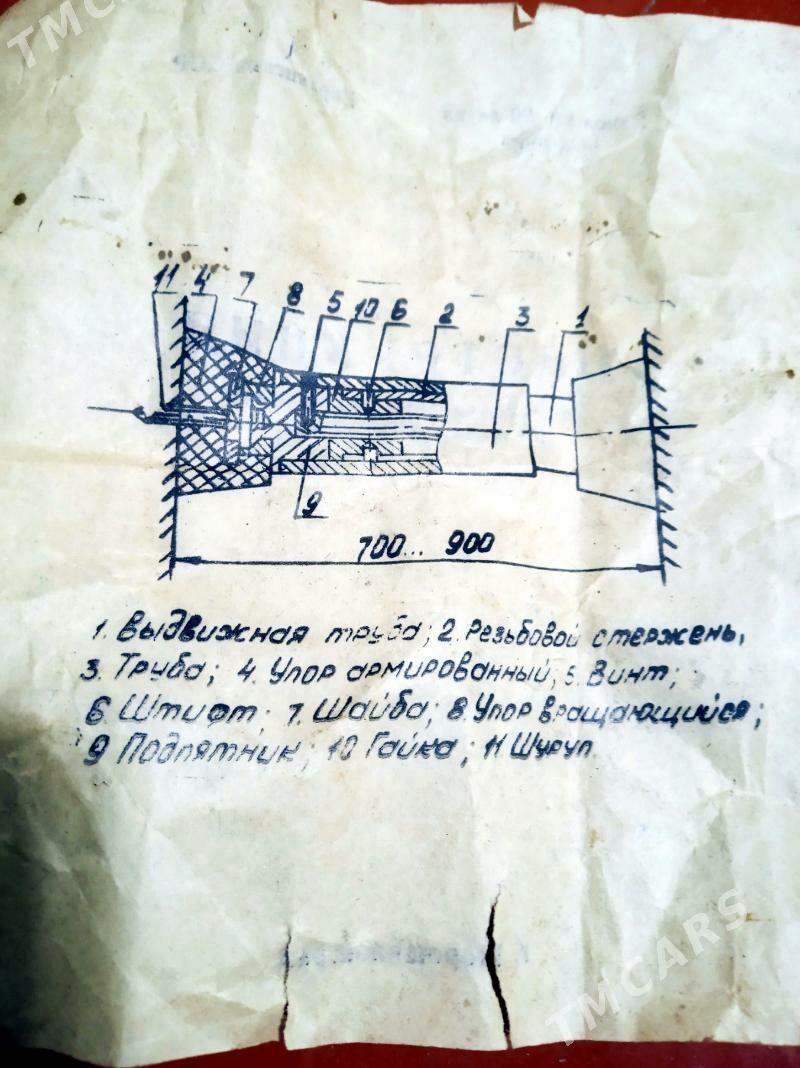 TMCARS
11 4 7 8 5 10 6 2 3 1
9
700... 900
1. Выдвижная труба; 2. Резьбовой стержень,
3. Труба; 4. Упор армированный; 5. Винт;
6 Штифт; 7. Шайба; 8. Упор вращающийся;
9 Подпятник; 10 Гайка; 11 Шуруп.
TMCARS